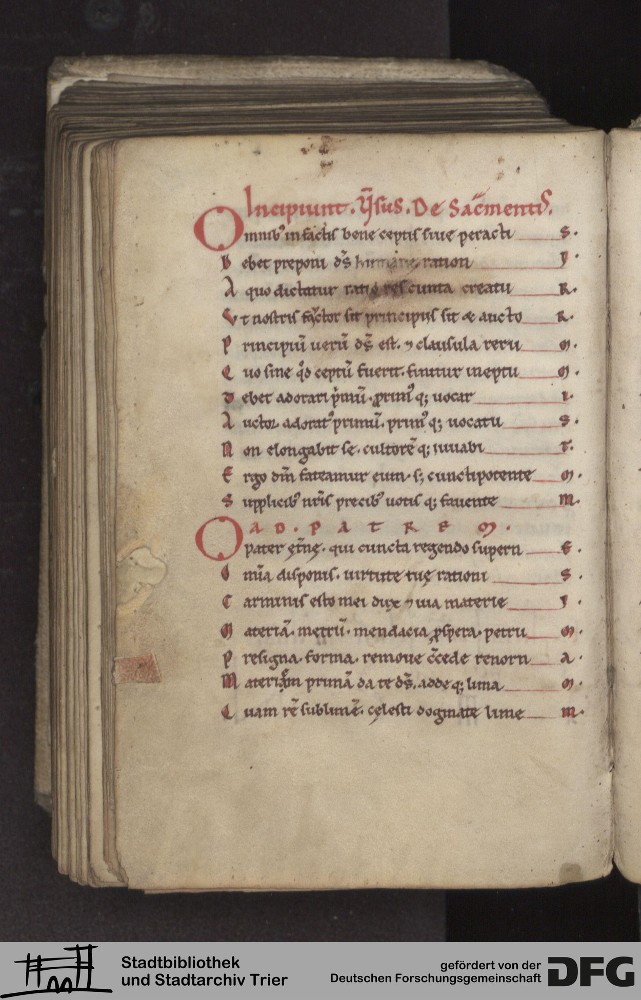 Incipiunt. v̄sus. De Sac̄mentis.
Omnib' in factis bene ceptis siue peracti s.
Debet preponi d̄s humane ration y.
A quo dictatur ratio res cuncta creatu R.
Vt nostris factor sit principiis sit & aucto R.
Principiū uerū d̄s est. ⁊ clausula reru m.
Quo sine qd̄ ceptū fuerit. finitur ineptu m.
Debet adorari p̄mū. prim' q; uocar i.
Auctor adorat' primū. prim' q; uocatu s.
Non elongabit se. cultorē q; iuuabi t.
Ergo dm̄ fateamur eum. s; cunctipotente m.
Supplicib' nr̄is precib' uotis q; fauente m.
AD. PATREM.
O pater et̄ne. qui cuncta regendo supern e.
Omīa disponis. uirtute tuę rationi s.
Carminis esto mei dux ⁊ uia materie y.
Materiā. metrū. mendacia. prospera. petru m.
Presigna. forma. remoue c̄cede renorn a.
Materiam prunā da te d̄s. adde q; lima m.
Quam rē sublimē. cęlesti dogmate lime m.
Stadtbibliothek
und Stadtarchiv Trier
gefördert von der
Deutschen Forschungsgemeinschaft
DFG